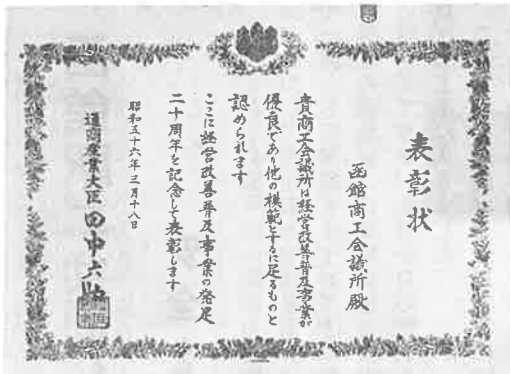 表彰状
函館商工会議所殿
貴商工会議所は経営改善普及事業が
優良であり他の模範とするに足るものと
認められます
ここに経営改善普及事業の発足
二十周年を記念して表彰します
昭和五十六年三月十八日
通商産業大臣 田中六助